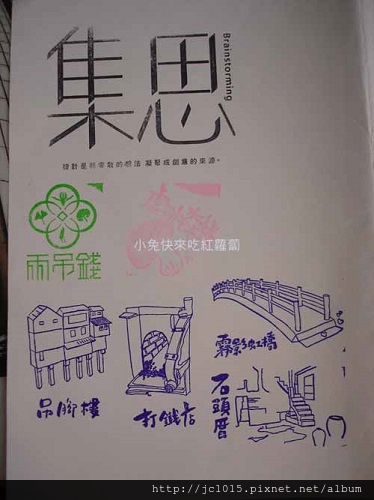 集思
Brainstorming
設計是將零散的想法 凝聚成創意的來源。
小兔快來吃紅蘿蔔
兩吊錢
霧影虹橋
吊腳樓
打鐵店
石頭厝
http://jc1015.pixnet.net/album